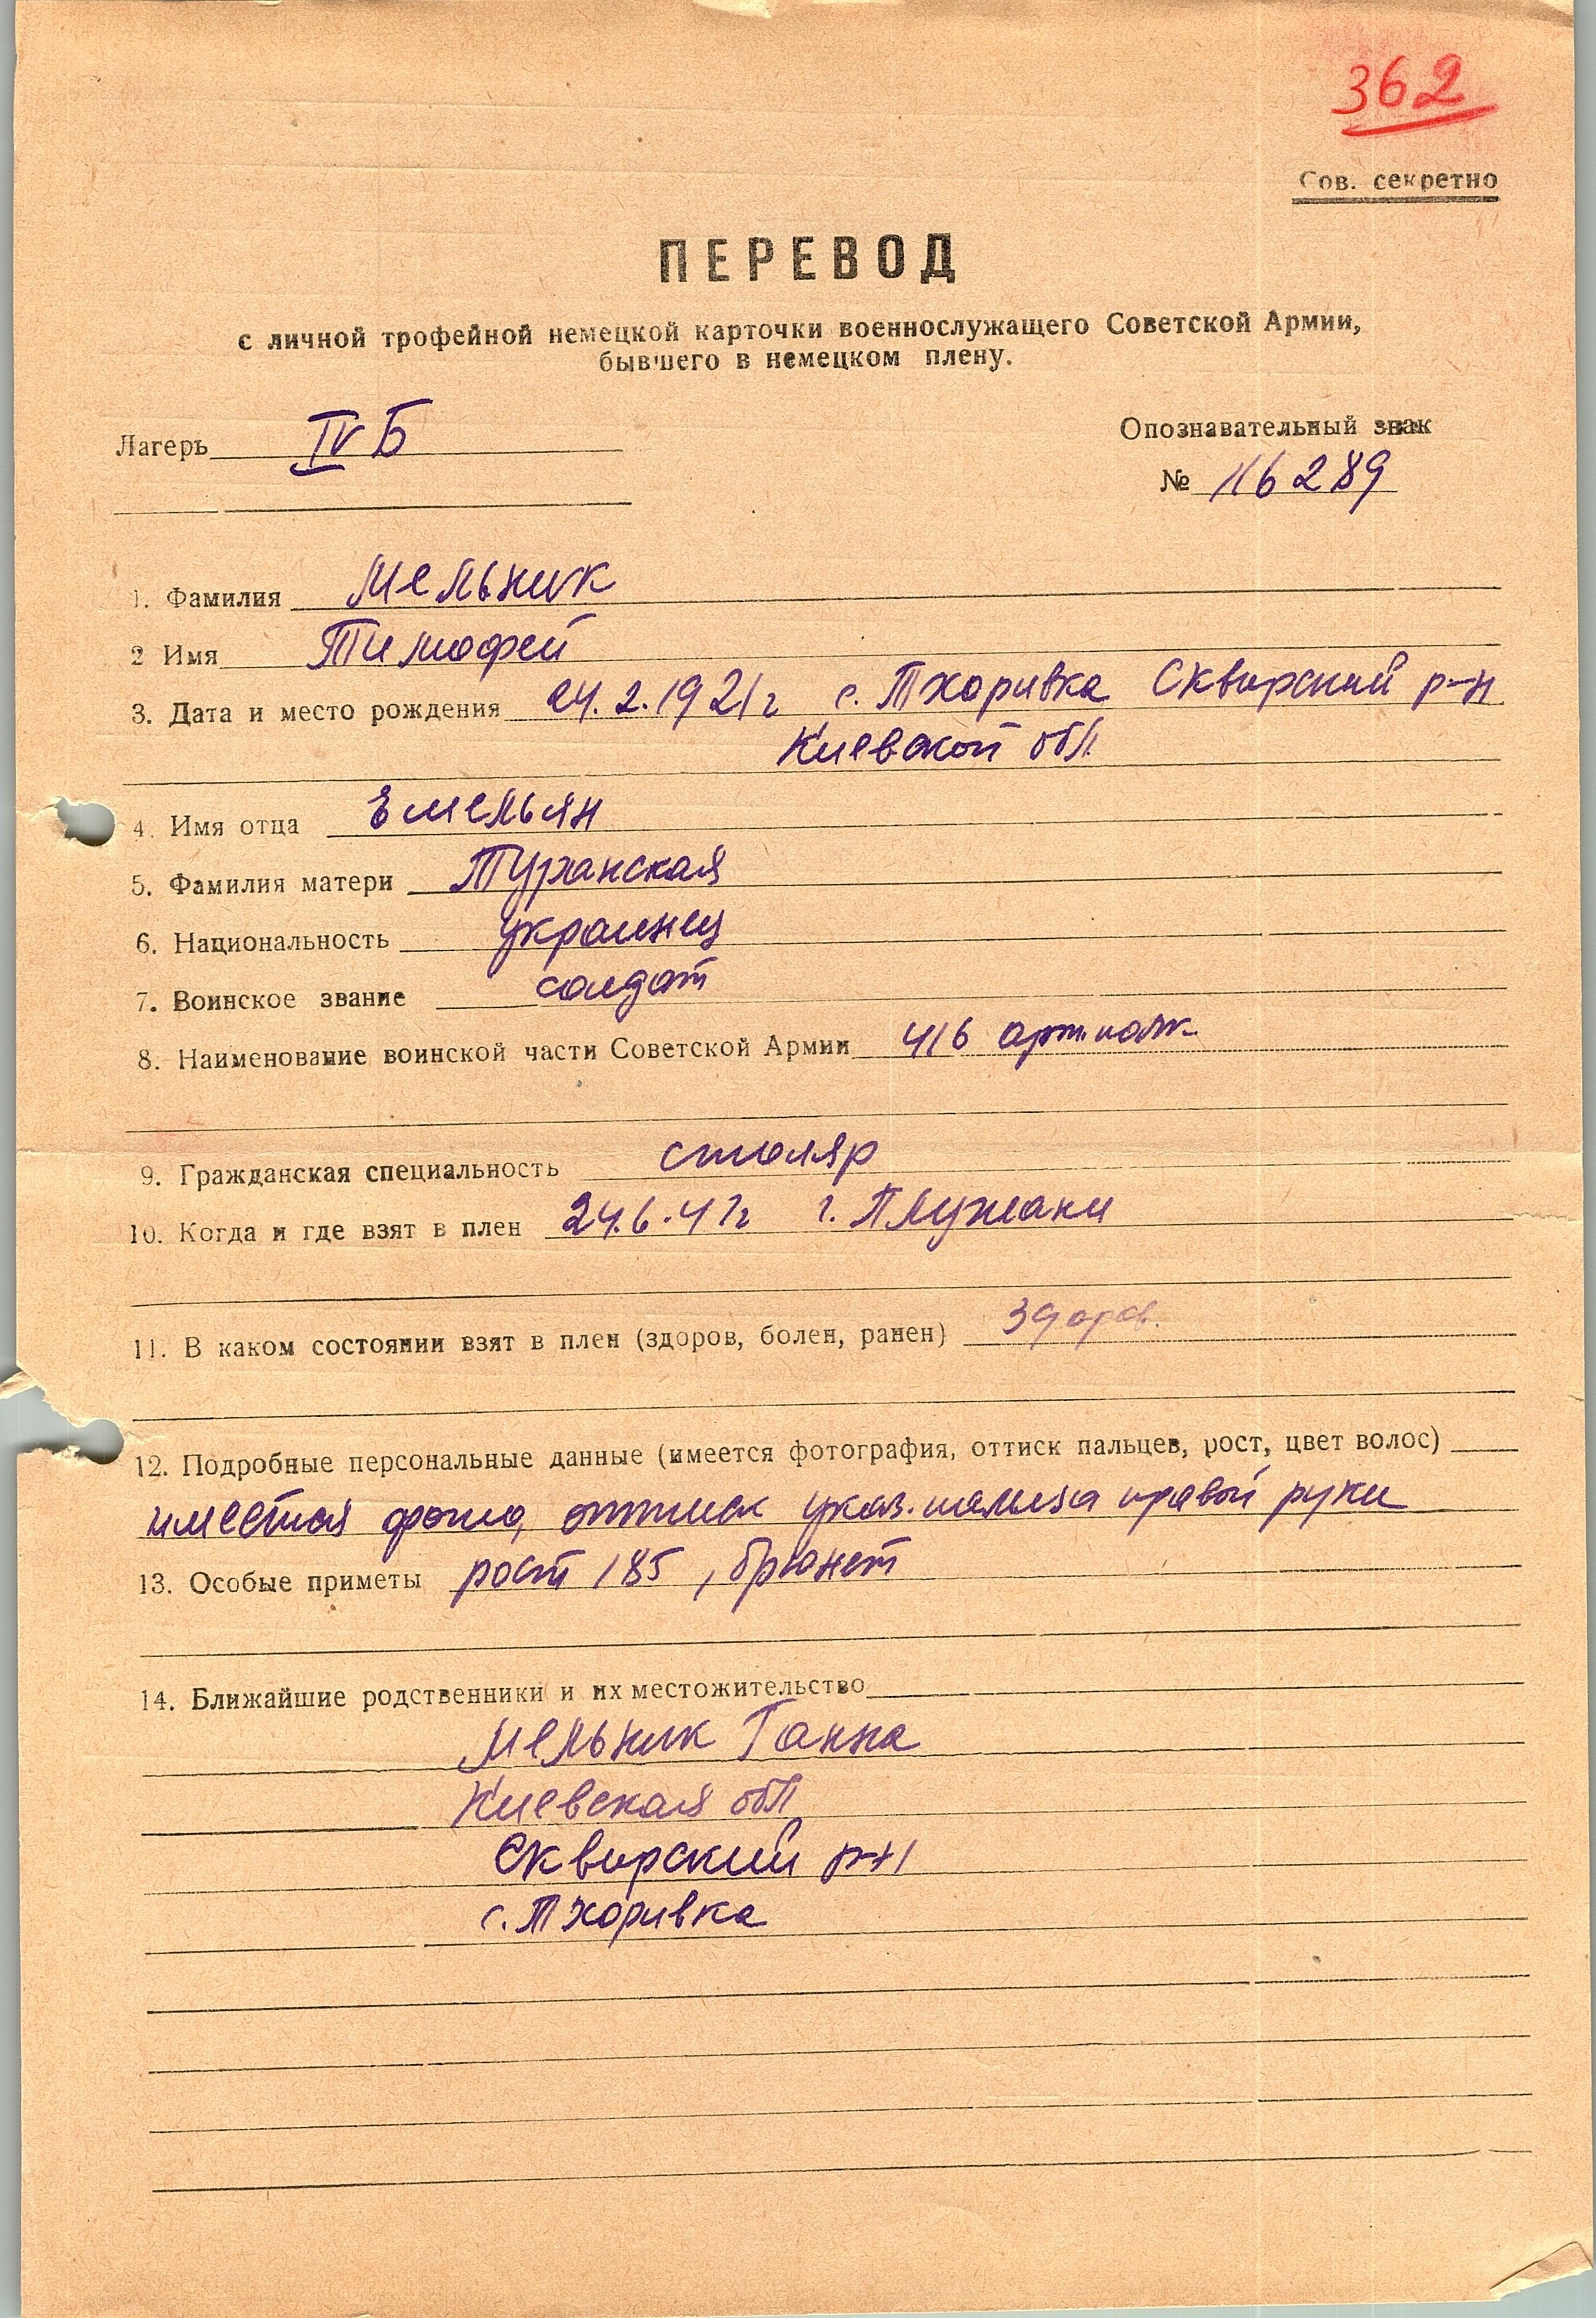 362
Сов. секретно
ПЕРЕВОД
с личной трофейной немецкой карточки военнослужащего Советской Армии,
бывшего в немецком плену.
Лагерь IV Б
Опознавательный знак
№ 116289
1. Фамилия Мельник
2 Имя Тимофей
3. Дата и место рождения 24.2.1921г с. Тхоривка Сквирский р-н
Киевской обл.
4. Имя отца Емельян
5. Фамилия матери Туранская
6. Национальность украинец
7. Воинское звание солдат
8. Наименование воинской части Советской Армии 416 арт. полк
9. Гражданская специальность столяр
10. Когда и где взят в плен 24.6.41г г. Плужани
11. В каком состоянии взят в плен (здоров, болен, ранен) здоров.
12. Подробные персональные данные (имеется фотография, оттиск пальцев, рост, цвет волос)
имеется фото, оттиск указ. пальца правой руки
13. Особые приметы рост 185, брюнет
14. Ближайшие родственники и их местожительство
Мельник Ганна
Киевская обл
Сквирский р-н
с. Тхоривка